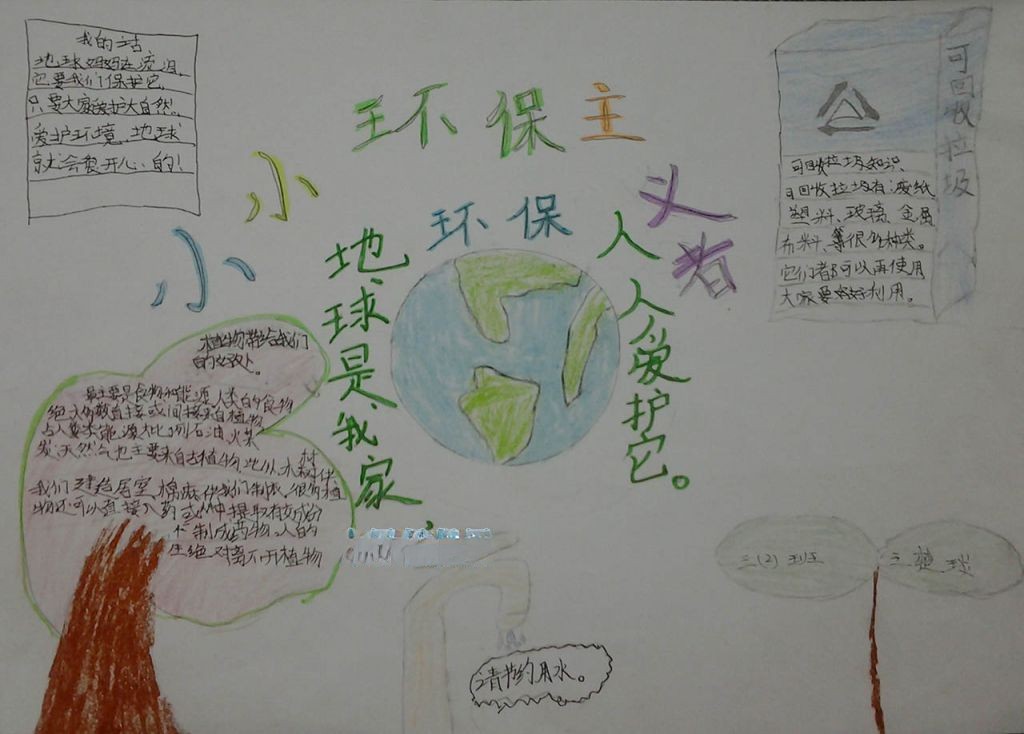 我的话
地球妈妈在
它要我们保护它
只要大家爱护大自然
爱护环境,地球
就会很开心的!
小小环不保主义者
环保
地球是我家,
人人爱护它。
可回收垃圾
可回收垃圾知识
可回收垃圾有:废纸
塑料、玻璃、金属
布料、等很多种类。
它们都可以再使用
大家要好好利用。
植物带给我们
的好处。
最主要是食物和能源,人类的食物
绝大多数直接或间接来自植物
石油,火柴
炭,天然气也主要来自古植物
我们建造房屋,棉麻供我们制衣,很多植
物还可以直接入药或从中提取有效成的
制成药物。人的
生绝对离不开植物
请节约用水。
三(2)班